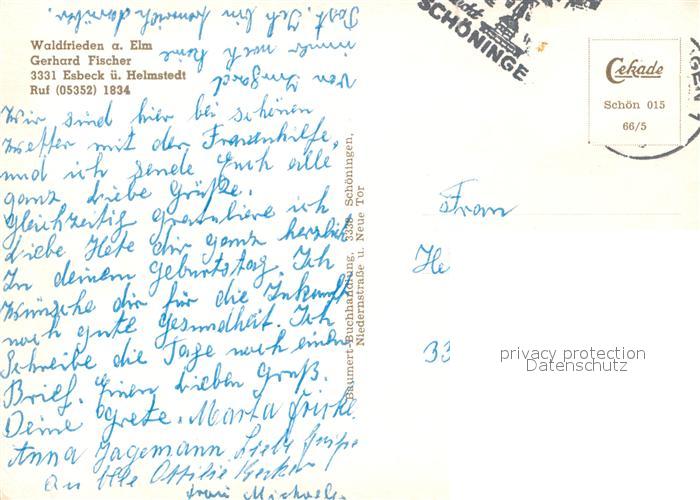 Waldfrieden a. Elm
Gerhard Fischer
3331 Esbeck ü. Helmstedt
Ruf (05352) 1834
Wir sind hier bei schönen
Wetter mit der Frauenhilfe,
und ich sende Euch alle
ganz liebe Grüße.
Gleichzeitig gratuliere ich
Liebe Hete dir ganz herzlich
In deinem Geburtstag. Ich
Wünsche dir für die Zukunft
noch gute Gesundheit. Ich
Schreibe die Tage noch einen
Brief. Einen lieben Gruß.
Deine Grete. Marta Fricke
Anna Hagemann Liebe Grüße
an Alle Ottilie
Frau Michaels
von Irmgard
immer noch keine
Post. Ich bin
Baumert Buchhandlung, 3338 Schöningen,
Niedernstraße u. Neue Tor
SCHÖNINGE
Cekade
Schön 015
66/5
Frau
He
33
privacy protection
Datenschutz